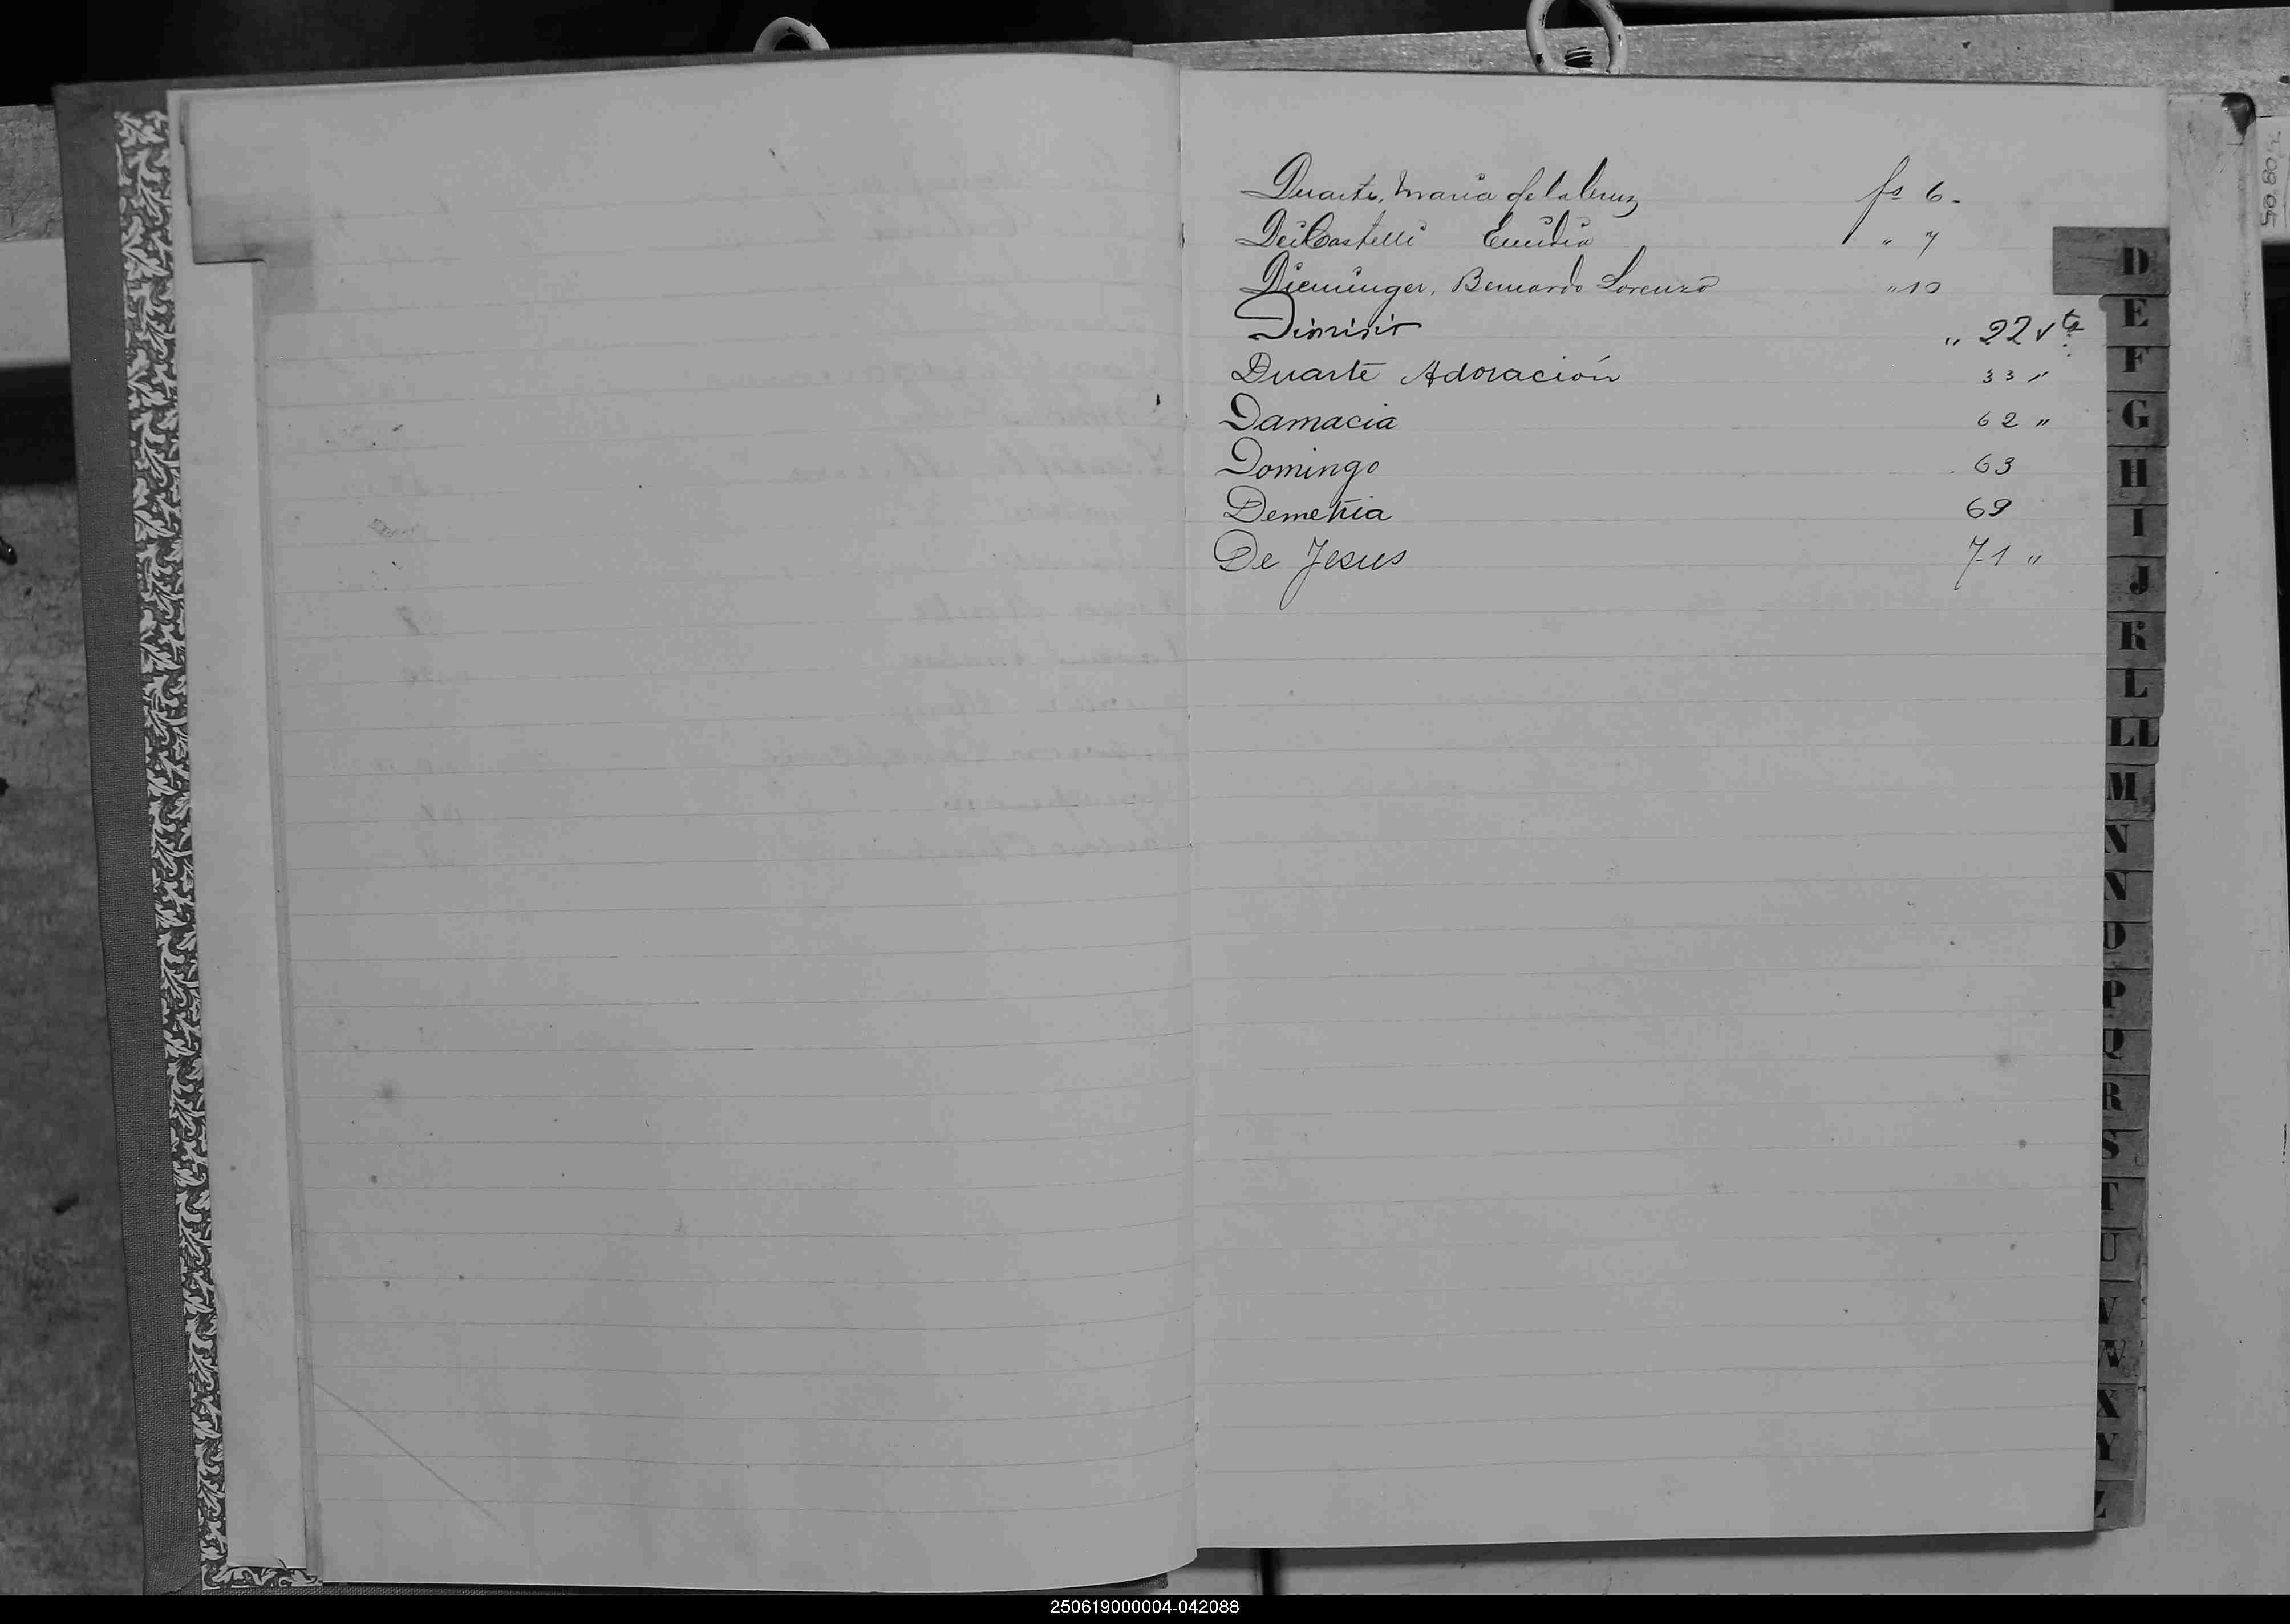 Duarte, Maria de la Cruz fs 6.
Dei Castelli Emidia " 7
Dieminger, Bernardo Lorenzo " 10
Dionisio " 22 vta
Duarte Adoración 33 "
Damacia 62 "
Domingo 63
Demetria 69
De Jesus 71 "
D
E
F
G
H
I
J
K
L
LL
M
N
N
O
P
Q
R
S
T
U
V
W
X
Y
Z
250619000004-042088